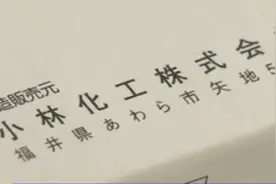 造販売元
小林化工株式会
福井県あわら市矢地5